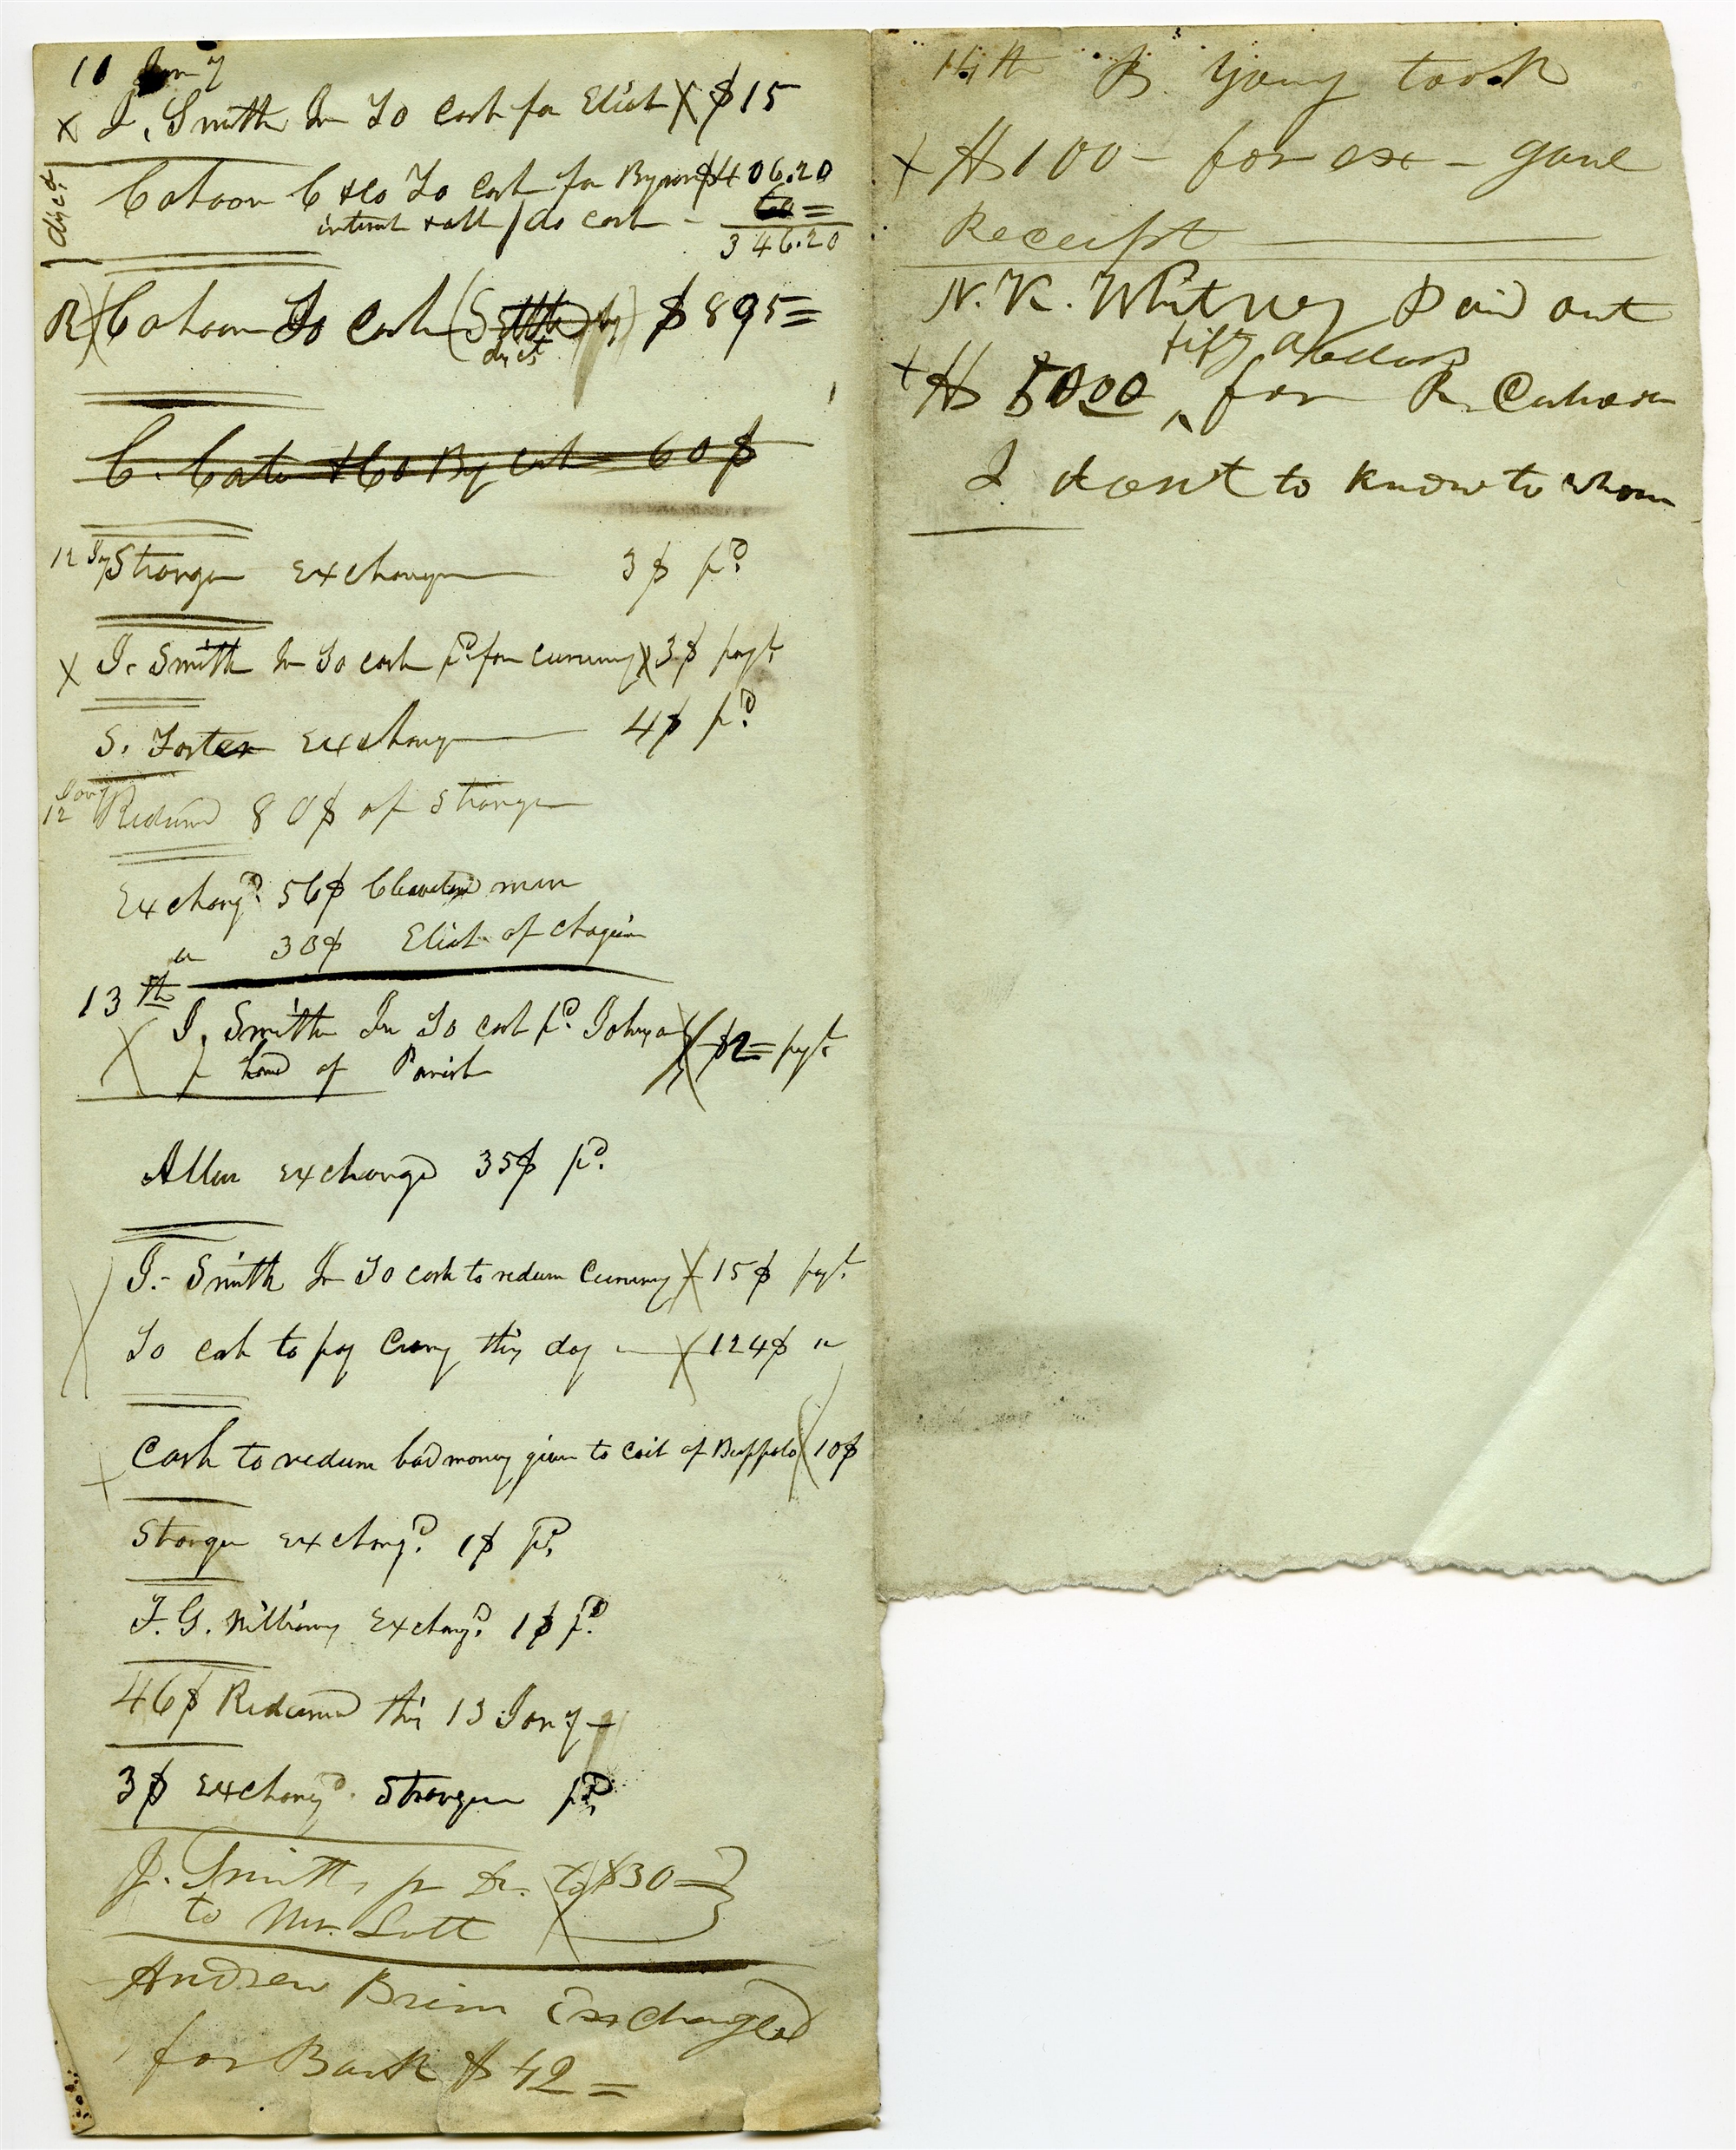 11 Jany
X J. Smith Jr To Cash for Eliot X $15
Cahoon C & Co To Cash for $406.20
interest & all / do cash - 60=
346.20
R Cahoon To Cash ( ) $895=
C. & Co By cash 60$
12 Jany Stranger exchange 3$ pd.
X J. Smith Jr To cash pd. for currency X 3$ payt.
S. Foster exchange 4$ pd.
Jany
12 Redeemd 80$ of Stranger
Exchangd. 56$ Cleaveland man
" 30$ Eliot of Chagrin
13th
X J. Smith Jr To cash pd.
f hand of Parish X $2= payt.
Allen exchangd 35$ pd.
J. Smith Jr To cash to redeem Currency X 15$ payt.
To cash to pay Crary this day X 124$ "
X Cash to redeem bad money given to Coit of Buffalo X 10$
Stranger exchangd. 1$ pd.
F. G. Williams Exchangd. 1$ pd.
46$ Redeemed this 13 Jany -
3$ exchangd. Stranger pd.
J. Smith, jr Dr. to $30=
to Mr. Lott
Andrew Brim Exchanged
for Bank $42=
14th B. Young took
X $100- for ex - gave
Receipt
N. K. Whitney Paid out
fifty dollars
+ $ 50.00 ^ for R. Cahoon
I dont to know to whom